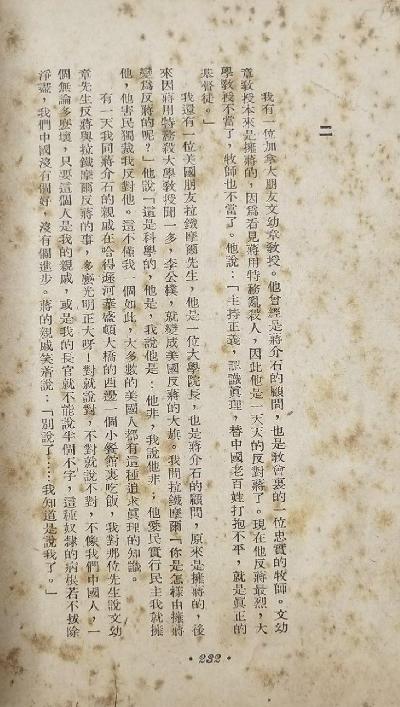 二
我有一位加拿大朋友文幼章敎授。他曾經是蔣介石的顧問，也是敎會裏的一位忠實的牧師。文幼
章敎授本來是擁蔣的，因爲看見蔣用特務亂殺人，因此他是一天天的反對蔣了。現在他反蔣最烈，大
學敎授不當了，牧師也不當了。他說：「主持正義，認識眞理，替中國老百姓打抱不平，就是眞正的
基督徒。」
我還有一位美國朋友拉鐵摩爾先生，他是一位大學院長，也是蔣介石的顧問，原來是擁蔣的，後
來因蔣用特務殺大學敎授聞一多，李公樸，就變成美國反蔣的大旗。我問拉鐵摩爾「你是怎樣由擁蔣
變爲反蔣的呢？」他說「這是科學的，他是，我說他是：他非，我說他非；他愛民實行民主我就擁
他，他害民獨裁我反對他。這不僅我一個如此，大多數的美國人都有這種追求眞理的知識。
有一天我同蔣介石的親戚在哈得遜河華盛頓大橋的西邊一個小餐館裏吃飯，我對那位先生說文幼
章先生反蔣與拉鐵摩爾反蔣的事，多麽光明正大呀！對就說對，不對就說不對，不像我們中國人，一
個無論多麽壞，只要這個人是我的親戚，或是我的長官就不能說半個不字，這種奴隸的病根若不拔除
淨盡，我們中國沒有個好，沒有個進步。蔣的親戚笑着說：「別說了……我知道是說我了。」
·232·